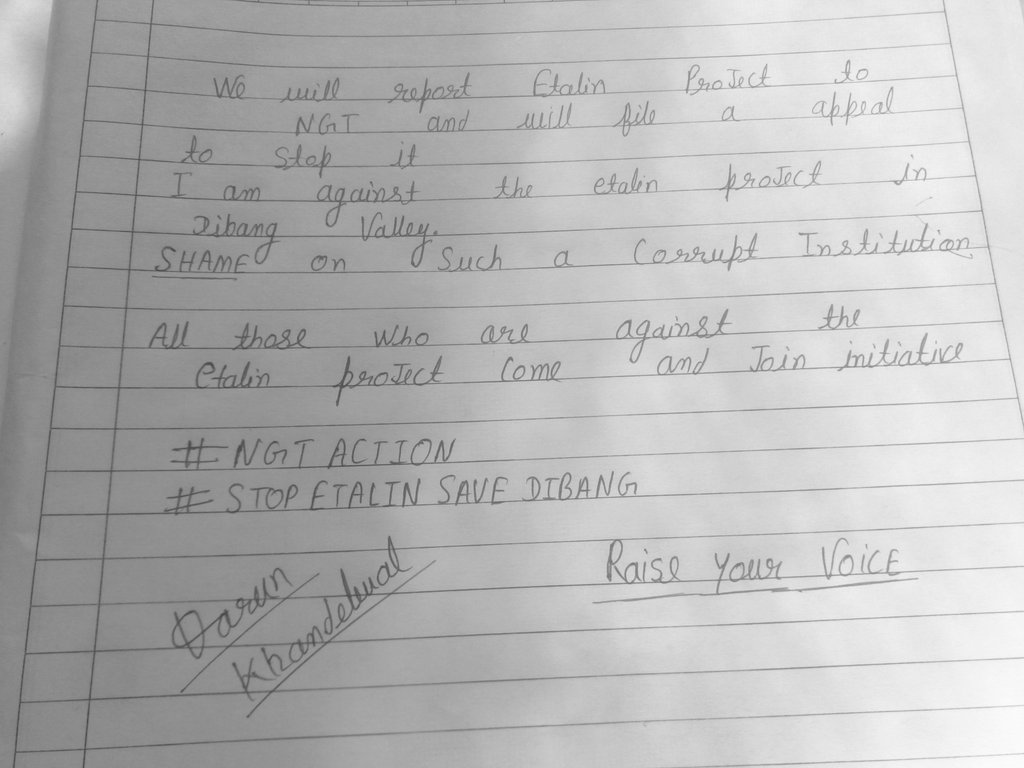 We will report Etalin ProJect to
NGT and will file a appeal
to stop it
I am against the etalin proJect in
Dibang Valley.
SHAME on Such a Corrupt Institution
All those who are against the
etalin proJect Come and Join initiative
# NGT ACTION
# STOP ETALIN SAVE DIBANG
Raise Your VOICE
Khandelwal